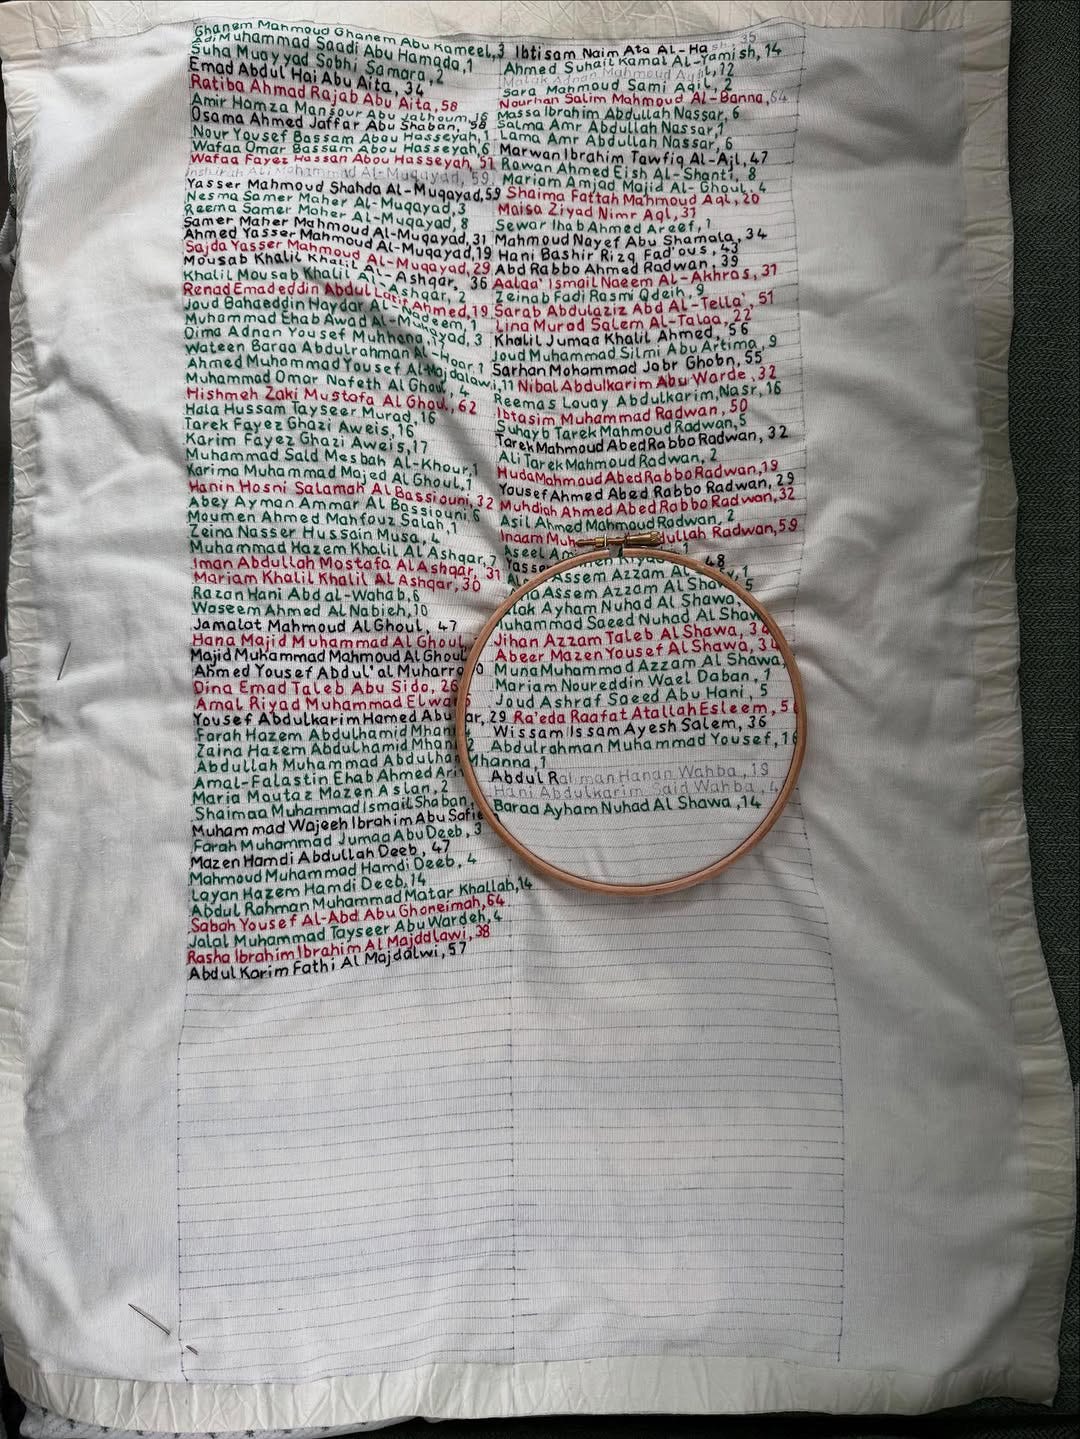 Ghanem Mahmoud Ghanem Abu Kameel, 3
Adi Muhammad Saadi Abu Hamada, 1
Suha Muayyad Sobhi Samara, 2
Emad Abdul Hai Abu Aita, 34
Ratiba Ahmad Rajab Abu Aita, 58
Amir Hamza Mansour Abu Jalhoum, 16
Osama Ahmed Jaffar Abu Shaban, 58
Nour Yousef Bassam Abou Hasseyah, 1
Wafaa Omar Bassam Abou Hasseyah, 6
Wafaa Fayez Hassan Abou Hasseyah, 51
Inshirah Ali Mohammad Al-Muqayad, 59
Yasser Mahmoud Shahda Al-Muqayad, 59
Nesma Samer Maher Al-Muqayad, 3
Reema Samer Maher Al-Muqayad, 8
Samer Maher Mahmoud Al-Muqayad, 31
Ahmed Yasser Mahmoud Al-Muqayad, 19
Sajda Yasser Mahmoud Al-Muqayad, 29
Mousab Khalil Khalil Al-Ashqar, 36
Khalil Mousab Khalil Al-Ashqar, 2
Renad Emadeddin Abdul Latif Ahmed, 19
Joud Bahaeddin Haydar Al-Nadeem, 1
Muhammad Ehab Awad Al-Muhayad, 3
Dima Adnan Yousef Muhhana, 17
Wateen Baraa Abdulrahman Al-Hoar, 1
Ahmed Muhammad Yousef Al-Majdalawi, 11
Muhammad Omar Nafeth Al Ghoul, 4
Hishmeh Zaki Mustafa Al Ghoul, 62
Hala Hussam Tayseer Murad, 16
Tarek Fayez Ghazi Aweis, 16
Karim Fayez Ghazi Aweis, 17
Muhammad Said Mesbah Al-Khour, 1
Karima Muhammad Majed Al Ghoul, 1
Hanin Hosni Salamah Al Bassiouni, 32
Abey Ayman Ammar Al Bassiouni, 6
Moumen Ahmed Mahfouz Salah, 1
Zeina Nasser Hussain Musa, 4
Muhammad Hazem Khalil Al Ashqar, 7
Iman Abdullah Mostafa Al Ashqar, 31
Mariam Khalil Khalil Al Ashqar, 30
Razan Hani Abd al-Wahab, 6
Waseem Ahmed Al Nabieh, 10
Jamalat Mahmoud Al Ghoul, 47
Hana Majid Muhammad Al Ghoul
Majid Muhammad Mahmoud Al Ghoul
Ahmed Yousef Abdul'al Muharro 0
Dina Emad Taleb Abu Sido, 26
Amal Riyad Muhammad Elwa
Yousef Abdulkarim Hamed Abu ar, 29
Farah Hazem Abdulhamid Mhan
Zaina Hazem Abdulhamid Mhan
Abdullah Muhammad Abdulha Mhanna, 1
Amal-Falastin Ehab Ahmed Ar
Maria Moutaz Mazen Aslan, 2
Shaimaa Muhammad Ismail Shaban,
Muhammad Wajeeh Ibrahim Abu Safie
Farah Muhammad Jumaa Abu Deeb, 3
Mazen Hamdi Abdullah Deeb, 47
Mahmoud Muhammad Hamdi Deeb, 4
Layan Hazem Hamdi Deeb, 14
Abdul Rahman Muhammad Matar Khallah, 14
Sabah Yousef Al-Abd Abu Ghoneimah, 64
Jalal Muhammad Tayseer Abu Wardeh, 4
Rasha Ibrahim Ibrahim Al Majdalawi, 38
Abdul Karim Fathi Al Majdalwi, 57
Ibtisam Naim Ata Al-Ha 35
Ahmed Suhail Kamal Al-Yamish, 14
Malak Adnan Mahmoud Aqil, 12
Sara Mahmoud Sami Aqil, 2
Nourhan Salim Mahmoud Al-Banna, 64
Massa Ibrahim Abdullah Nassar, 6
Salma Amr Abdullah Nassar, 1
Lama Amr Abdullah Nassar, 6
Marwan Ibrahim Tawfiq Al-Ajl, 47
Rawan Ahmed Eish Al-Shanti, 8
Mariam Amjad Majid Al-Ghoul, 4
Shaima Fattah Mahmoud Aql, 20
Maisa Ziyad Nimr Aql, 31
Sewar Ihab Ahmed Areef, 1
Mahmoud Nayef Abu Shamala, 34
Hani Bashir Rizq Fad'ous, 43
Abd Rabbo Ahmed Radwan, 39
Aalaa' Ismail Naeem Al-Akhras, 31
Zeinab Fadi Rasmi Qdeih, 9
Sarab Abdulaziz Abd Al-Tella', 51
Lina Murad Salem Al-Talaa, 22
Khalil Jumaa Khalil Ahmed, 56
Joud Muhammad Silmi Abu Artima, 9
Sarhan Mohammad Jabr Ghobn, 55
Nibal Abdulkarim Abu Warde, 32
Reemas Louay Abdulkarim Nasr, 16
Ibtasim Muhammad Radwan, 50
Suhayb Tarek Mahmoud Radwan, 5
Tarek Mahmoud Abed Rabbo Radwan, 32
Ali Tarek Mahmoud Radwan, 2
Huda Mahmoud Abed Rabbo Radwan, 19
Yousef Ahmed Abed Rabbo Radwan, 29
Muhdiah Ahmed Abed Rabbo Radwan, 32
Asil Ahmed Mahmoud Radwan, 2
Inaam Muh dullah Radwan, 59
Aseel Am 1
Yasse 48
Assem Azzam Al 1
Assem Azzam Al Shaw 5
lak Ayham Nuhad Al Shawa,
uhammad Saeed Nuhad Al Shaw
Jihan Azzam Taleb Al Shawa, 34
Abeer Mazen Yousef Al Shawa, 34
Muna Muhammad Azzam Al Shawa,
Mariam Noureddin Wael Daban, 1
Joud Ashraf Saeed Abu Hani, 5
Ra'eda Raafat Atallah Esleem, 5
Wissam Issam Ayesh Salem, 36
Abdulrahman Muhammad Yousef, 16
Abdul Rahman Hanan Wahba, 19
Hani Abdulkarim Said Wahba, 4
Baraa Ayham Nuhad Al Shawa, 14